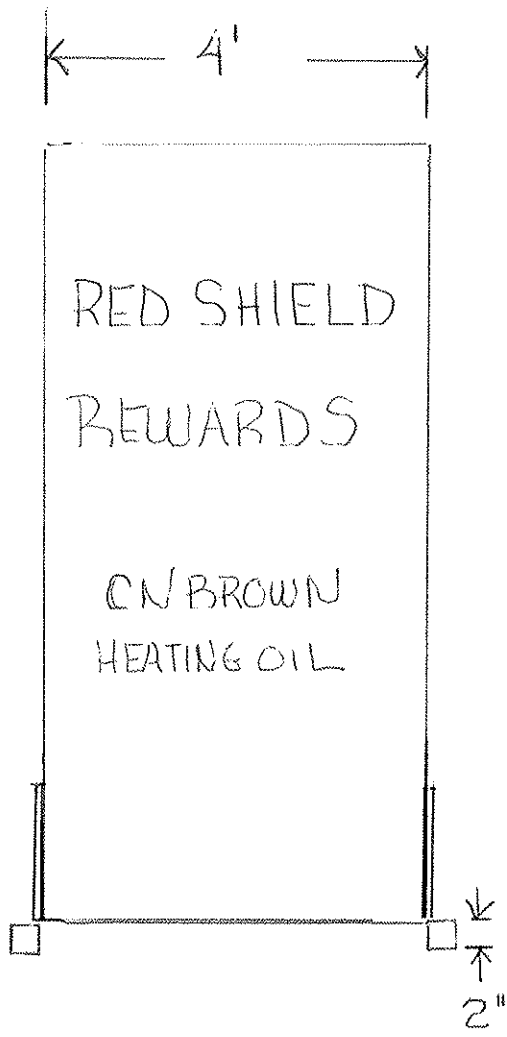 4'
RED SHIELD
REWARDS
CN BROWN
HEATING OIL
2"